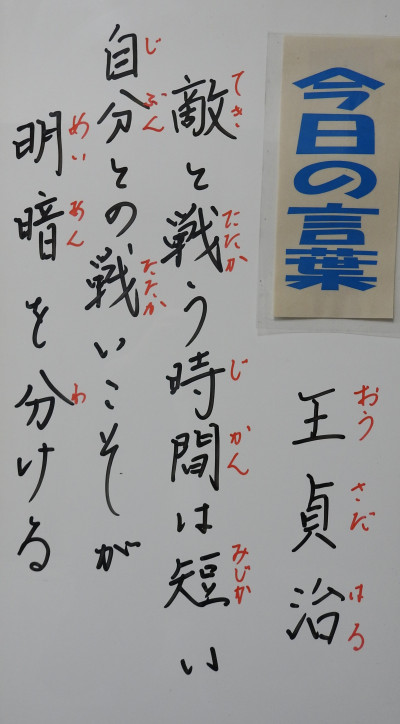 今日の言葉
王貞治
おうさだはる
敵と戦う時間は短い
てきたたかじかんみじか
自分との戦いこそが
じぶんたたか
明暗を分ける
めいあんわ